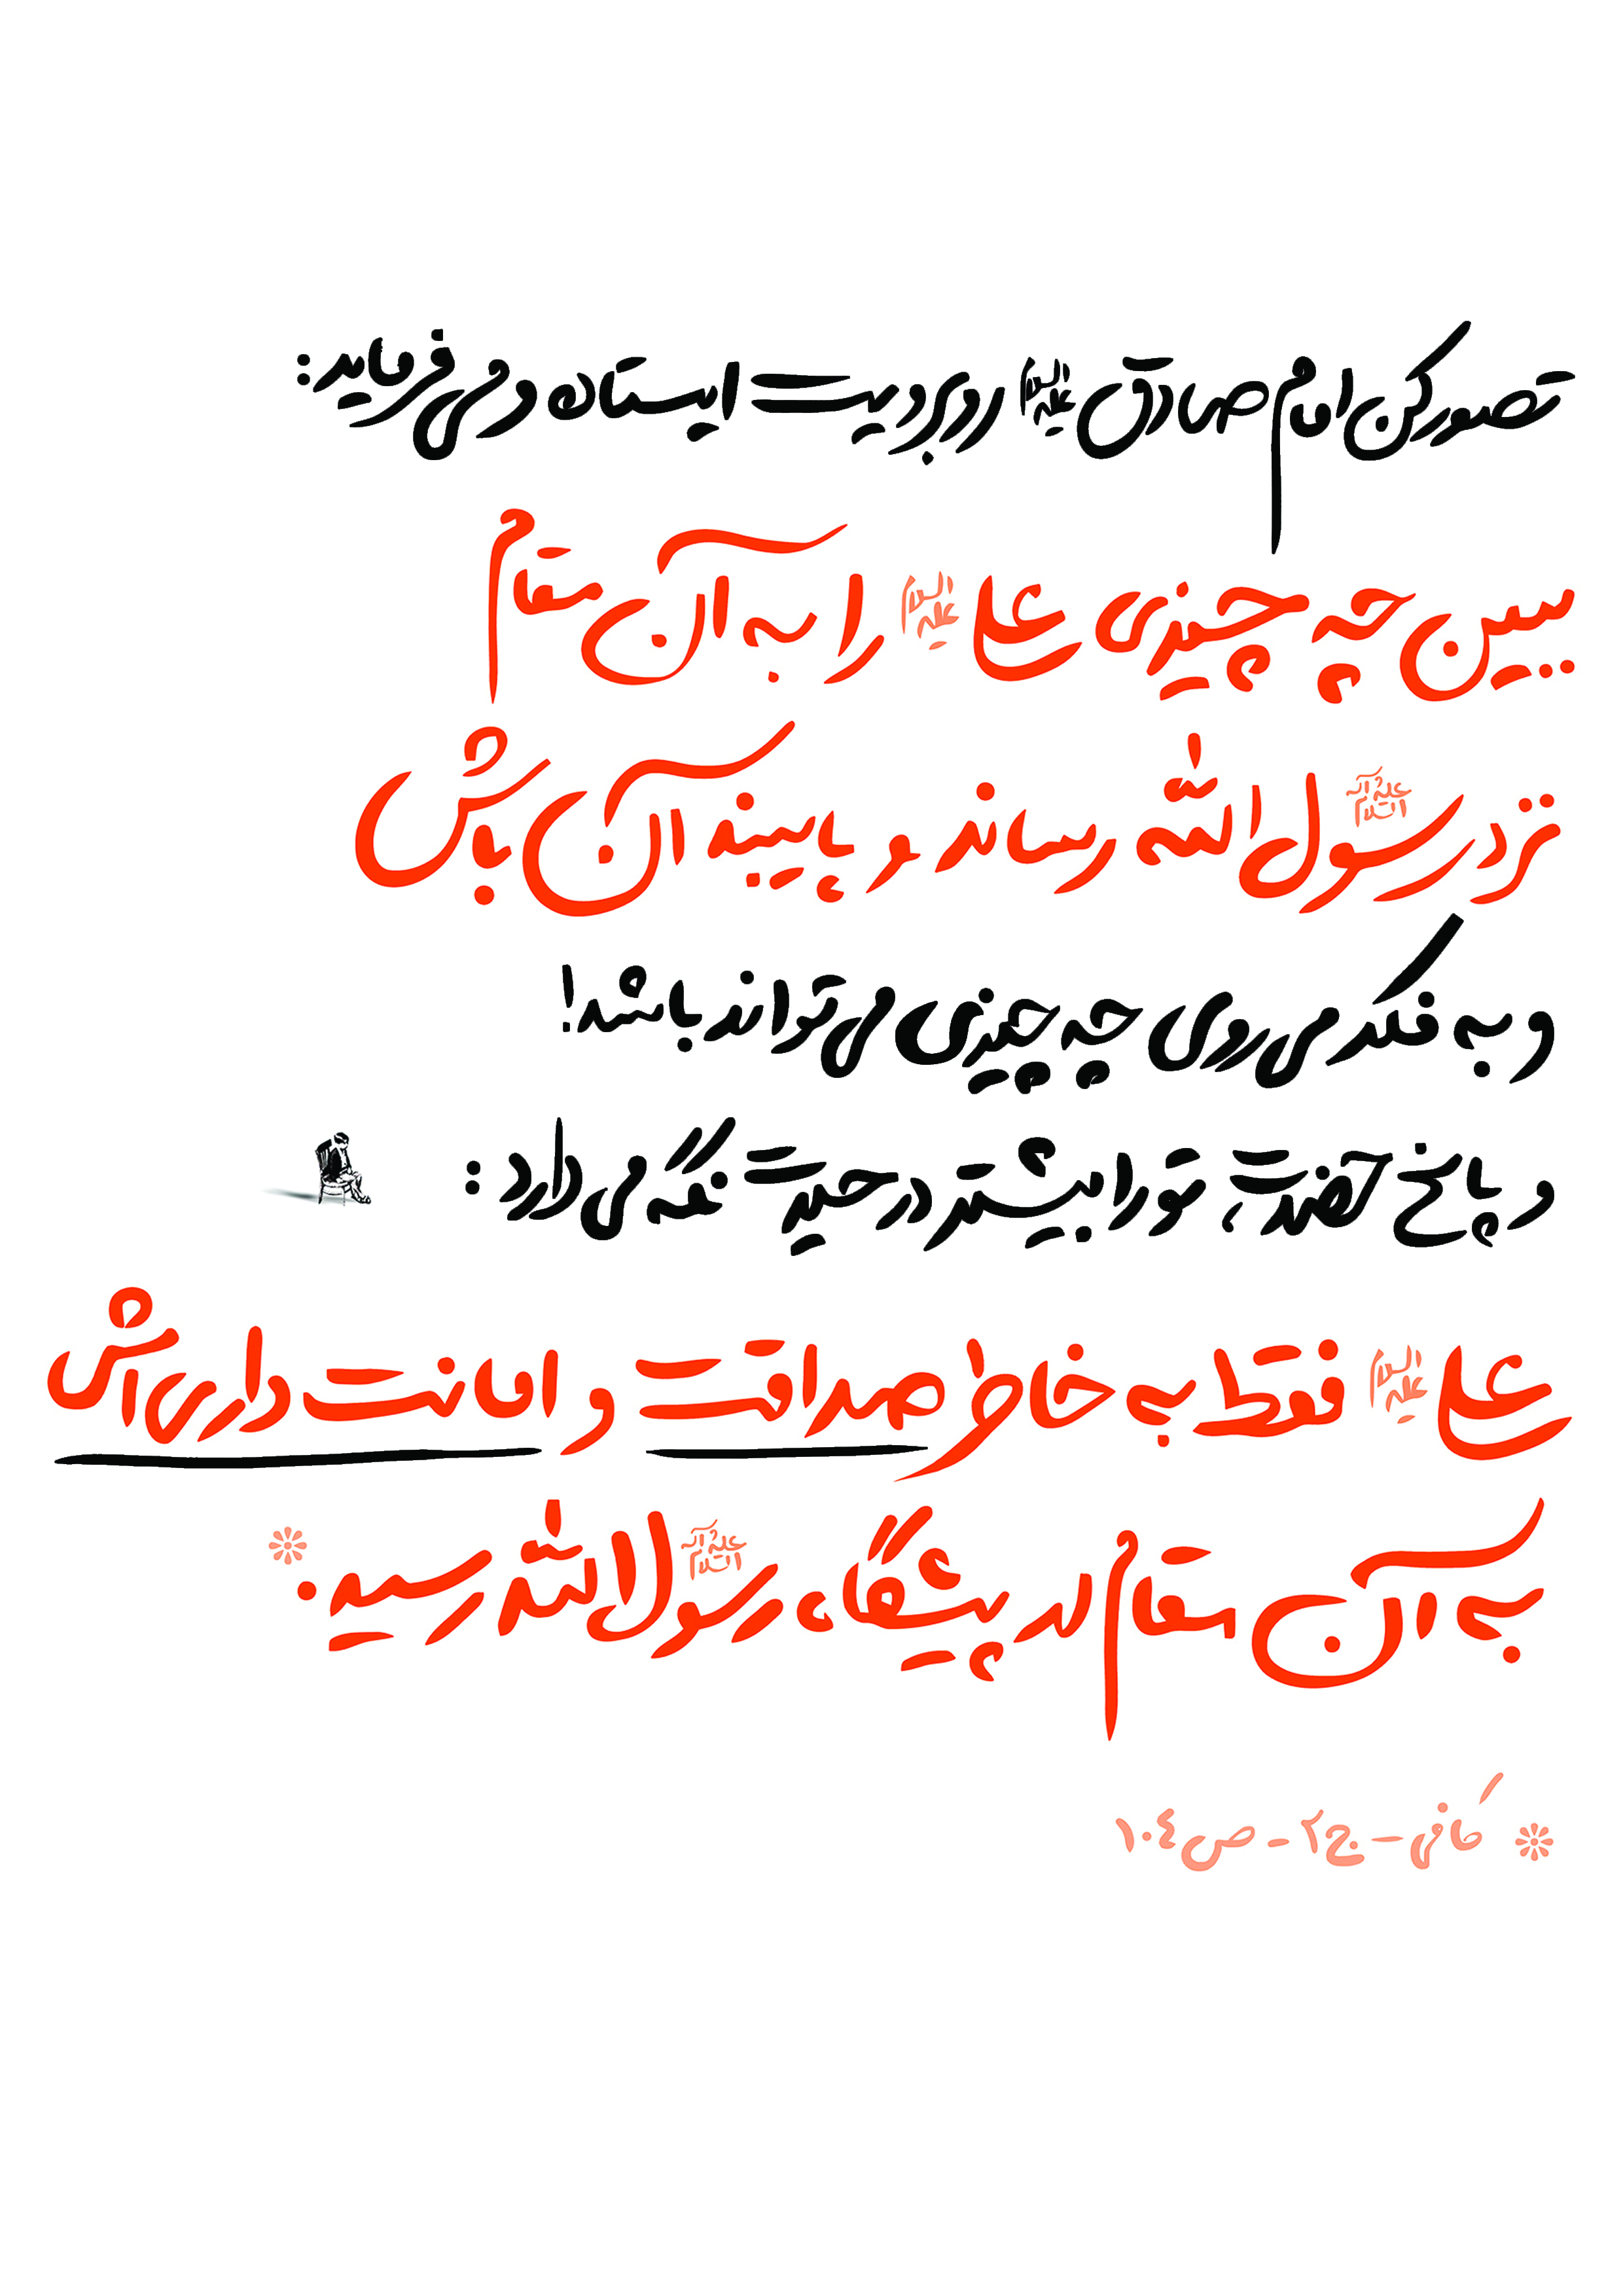 تصور کن امام صادق علیه السلام روبرویت ایستاده و می فرماید:
ببین چه چیزی علی علیه السلام را به آن مقام
نزد رسول الله علیه و آله السلام رساند و پایبند آن باش
و به فکر می روی چه چیزی می تواند باشد!
و پاسخ حضرت، تو را بیشتر در حیرت نگه می دارد:
علی علیه السلام فقط به خاطر صداقت و امانت داری اش
به آن مقام در پیشگاه رسول الله علیه و آله السلام رسید. *
* کافی - ج۲ - ص۱۰۴